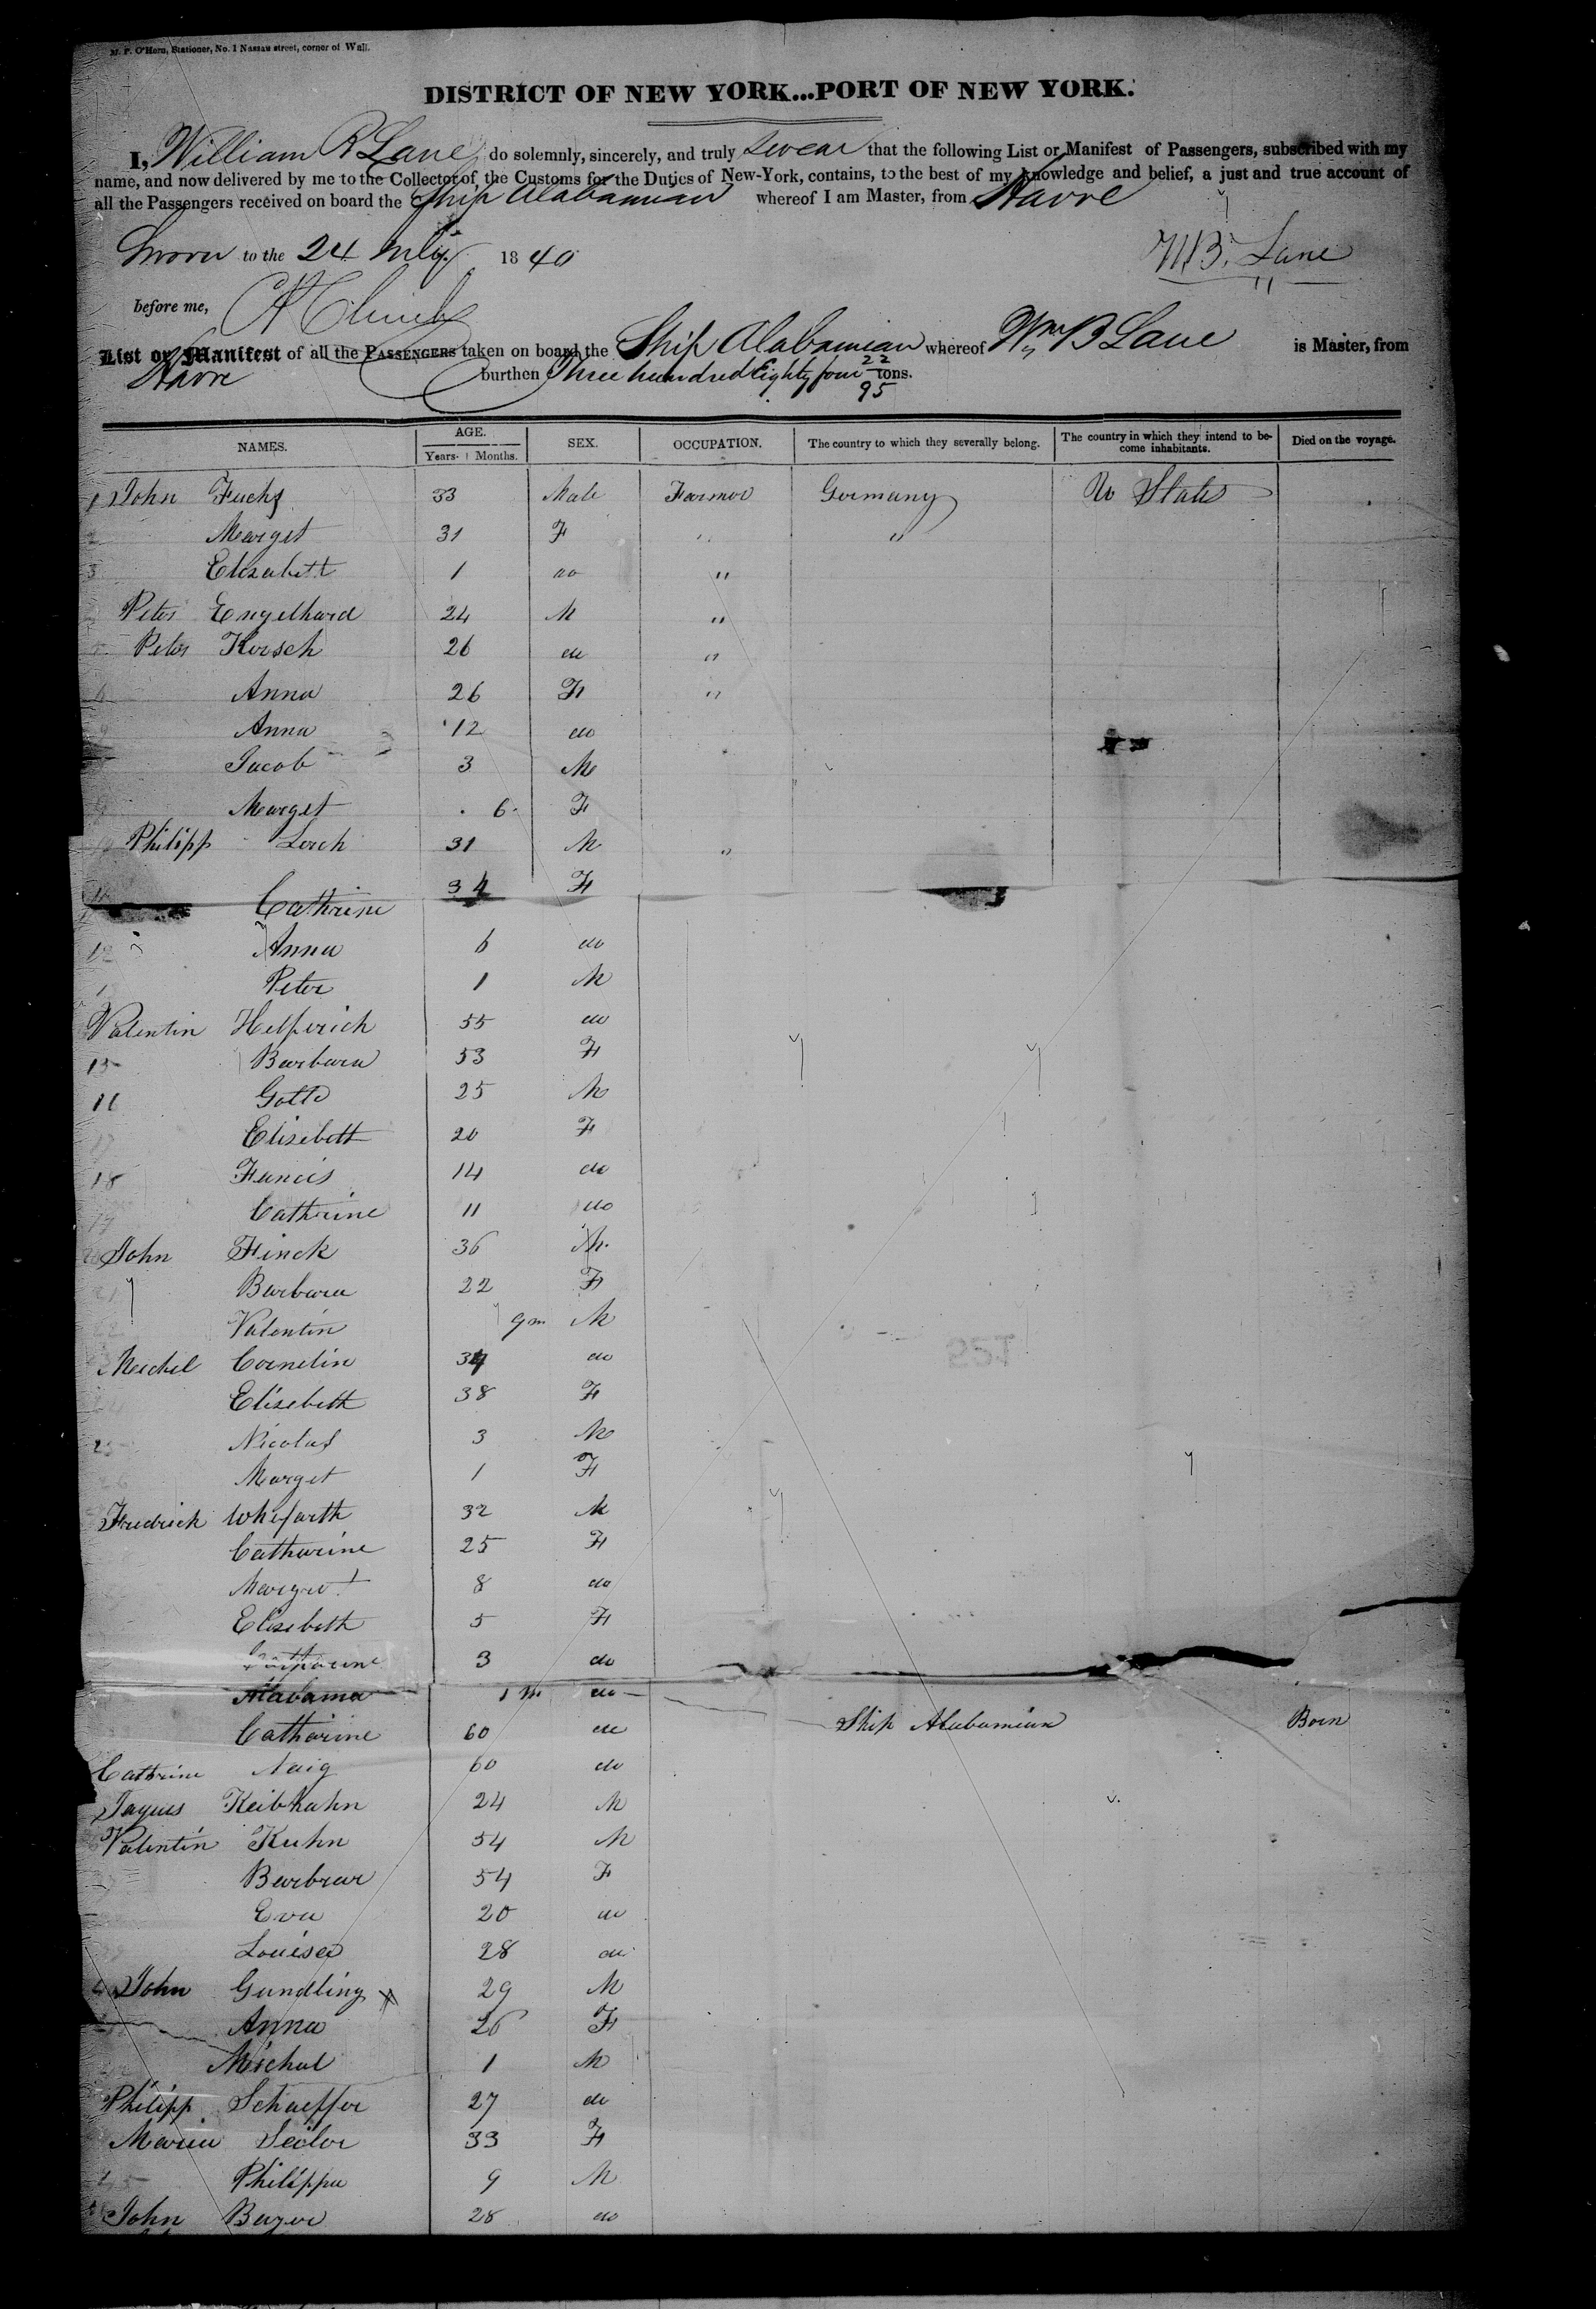 M. P. O'Hern, Stationer, No. 1 Nassau street, corner of Wall.
DISTRICT OF NEW YORK...PORT OF NEW YORK.
I, William B Lane do solemnly, sincerely, and truly swear that the following List or Manifest of Passengers, subscribed with my
name, and now delivered by me to the Collector of the Customs for the Duties of New-York, contains, to the best of my knowledge and belief, a just and true account of
all the Passengers received on board the Ship Alabamian whereof I am Master, from Havre
Sworn to the 24 July 1840
W B. Lane
before me,
List or Manifest of all the PASSENGERS taken on board the Ship Alabamian whereof Wm B Lane is Master, from
Havre burthen Three hundred Eighty four 22/95 tons.
NAMES. AGE. Years. Months. SEX. OCCUPATION. The country to which they severally belong. The country in which they intend to become inhabitants. Died on the voyage.
1 John Fuchs 33 Male Farmer Germany U States
2 Marget 31 F " "
3 Elisabett 1 do "
Peter Engelhard 24 M "
Peter Korsch 26 do "
6 Anna 26 F "
Anna 12 do
Jacob 3 M
Marget 6 F
Philipp Lerch 31 M "
Cathrine 34 F
12 Anna 6 do
Peter 1 M
Valentin Helferich 55 do
15 Barbara 53 F
16 25 M
Elisebett 20 F
18 Francis 14 do
Cathrine 11 do
John Finck 36 M.
21 Barbara 22 F
22 Valentin 9m M
Meichel Cornelin 34 do
Elisebeth 38 F
25 Nicolas 3 M
26 Marget 1 F
Fredrick 32 M
Catharine 25 F
Margret 8 do
Elisebeth 5 F
Catharine 3 do
Alabama 1 m do
Catharine 60 do Ship Alabamian Born
Cathrine Naig 60 do
Jaques Keibhahn 24 M
Valentin Kuhn 54 M
Barbrar 54 F
Eva 20 do
Louisa 28 do
John Gundling 29 M
Anna 26 F
Michal 1 M
Philipp Schaeffer 27 do
Maria Seiler 33 F
45 Philippa 9 M
John Bayer 28 do